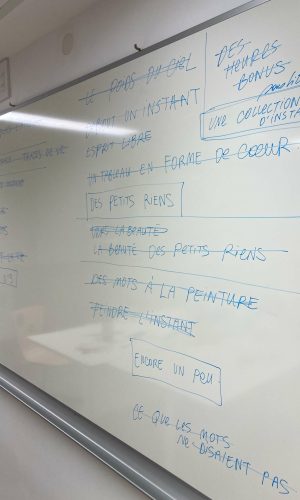 LE POIDS DU CIEL
ESPRIT UN INSTANT
ESPRIT LIBRE
UN TABLEAU EN FORME DE COEUR
DES PETITS RIENS
TOUTE LA BEAUTÉ
LA BEAUTÉ DES PETITS RIENS
DES MOTS À LA PEINTURE
PEINDRE L'INSTANT
ENCORE UN PEU
CE QUE LES MOTS
NE DISAIENT PAS
DES
HEURES
BONUS
UNE COLLECTION
D'INSTA
DE VIE